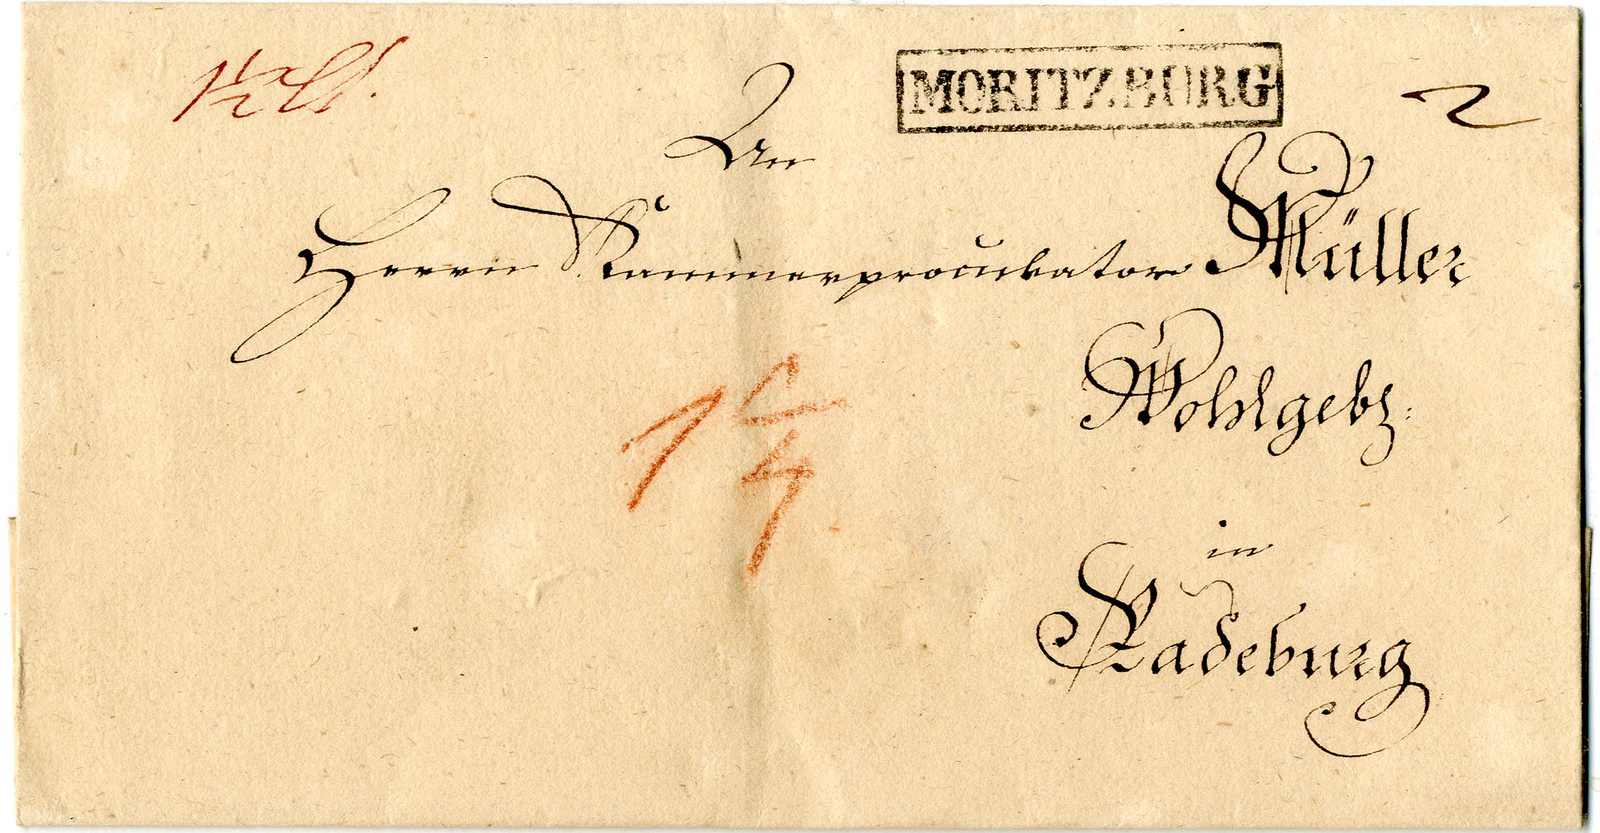 MORITZBURG
2
An
Herrn Kammerprocurator Müller
Wohlgeb:
in
Radeburg